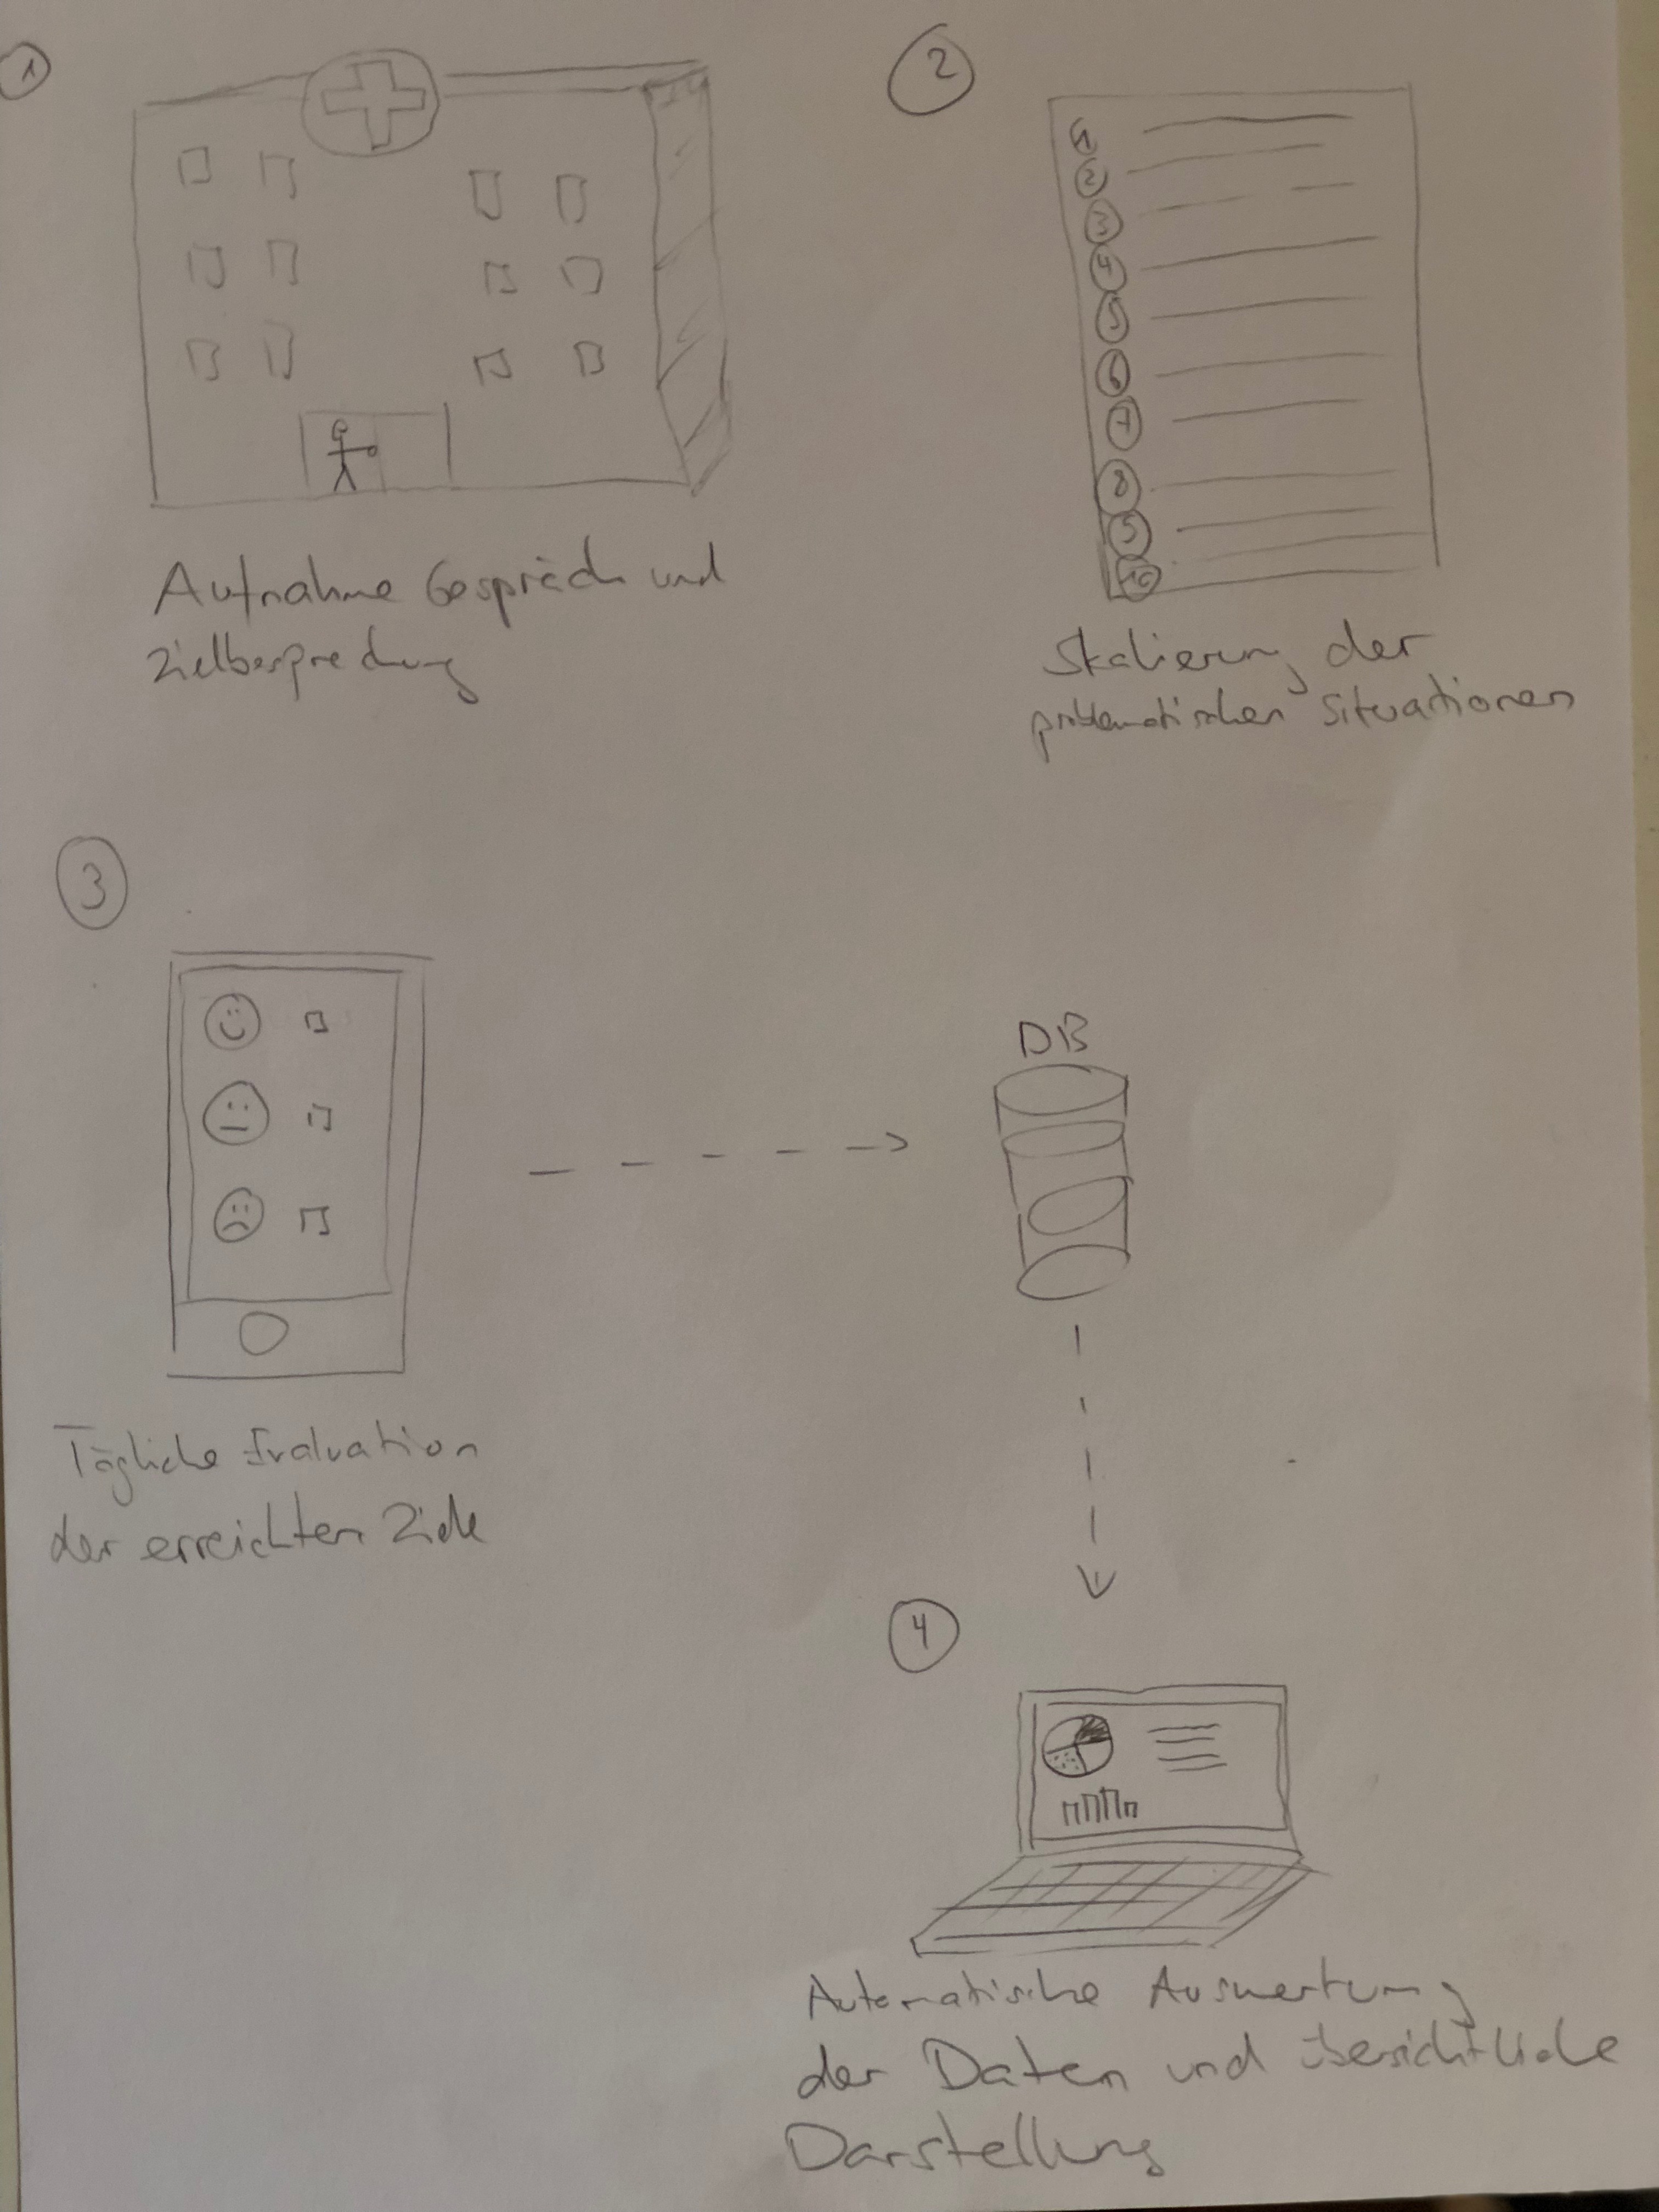 1
Aufnahme Gespräch und
Zielbesprechung
2
1
2
3
4
5
6
7
8
9
10
Skalierung der
problematischen Situationen
3
Tägliche Evaluation
der erreichten Ziele
DB
4
Automatische Auswertung
der Daten und übersichtliche
Darstellung